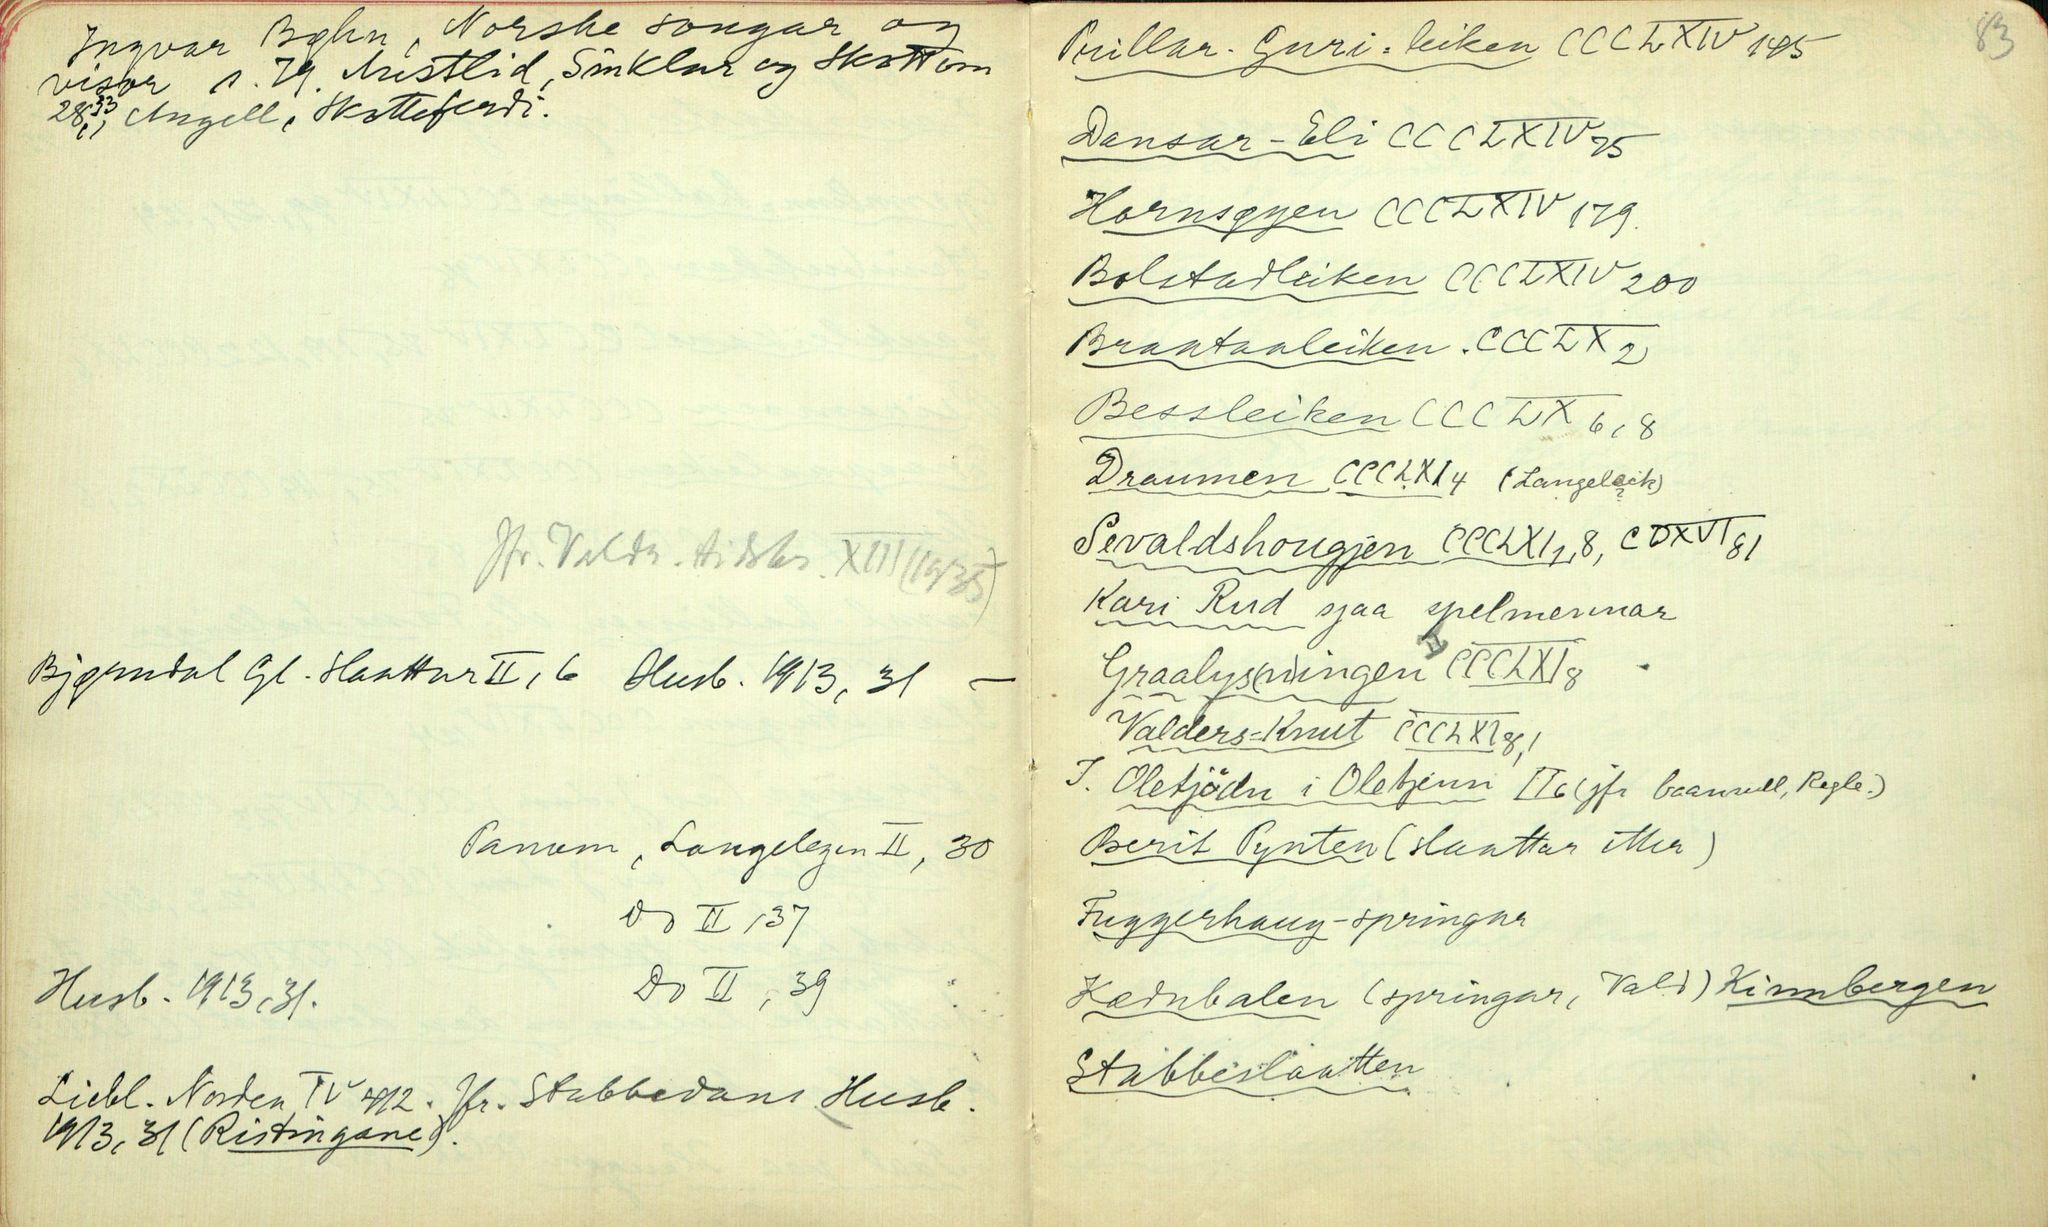 Ingvar Bøhn, Norske songar og
visor s. 79. Austlid, Sinklar og Skottom
28, 33 Angell, Skotteferdi.
Jfr. Valdr. tidskr. XIII (1935)
Bjørndal Gl. slaattar II, 6 Husb. 1913, 31 —
Panum, Langelegen II, 30
Do II, 37
Husb. 1913, 31. Do II, 39
Liebl. Norden IV 412. Jfr. Stabbedans Husb.
1913, 31 (Ristingane).
83
Prillar-Guri-leiken CCCLXIV 145
Dansar-Eli CCCLXIV 75
Hornsøyen CCCLXIV 179.
Bolstadleiken CCCLXIV 200
Braataaleiken. CCCLX 2
Bessleiken CCCLX 6, 8
Draumen CCCLXI 4 (Langeleik)
Sevaldshougjen CCCLXI 1, 8, CDXVI 81
Kari Rud sjaa spelmennar
Graalys(n)ingen CCCLXI 8
Valders-Knut CCCLXI 8, 1
J. Oletjödn i Oletjenn II 6 (jfr baansull, Regle.)
Berit Pynten (slaattar etter)
Fuggerhaug-springar
Kædnbalen (springar, Vald) Kinnbergen
Stabbeslaatten